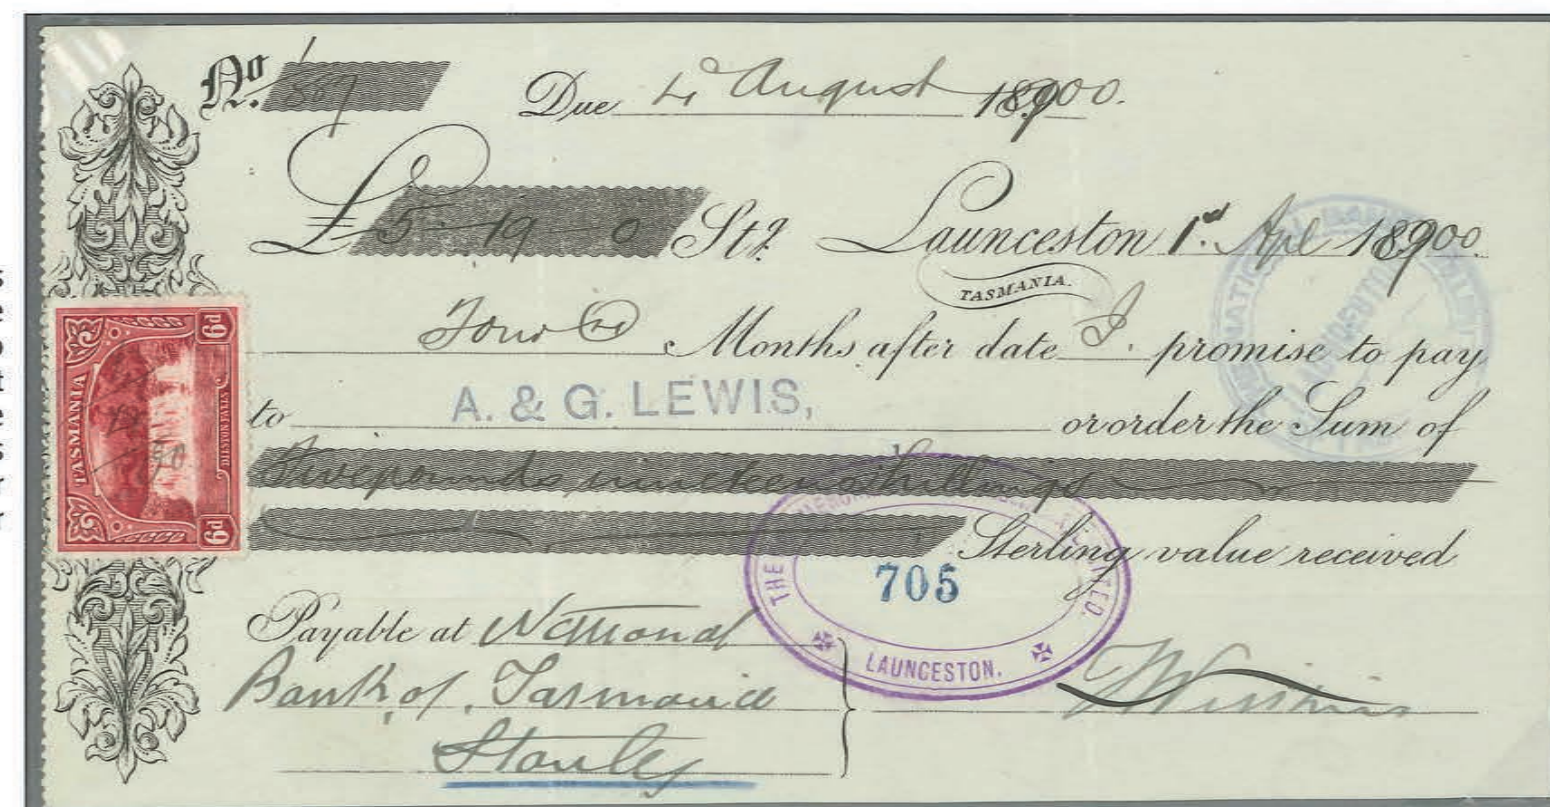 No. 887
Due 4 August 18900.
£ 5 - 19 - 0 Stg. Launceston 1st. Apl 18900
TASMANIA.
Four (4) Months after date I. promise to pay
to A. & G. LEWIS, or order the Sum of
Five pounds nineteen shillings
Sterling value received
Payable at National
Bank of Tasmania
Stanley
TASMANIA
6d
6d
DILSTON FALLS
90
THE LIMITED.
705
LAUNCESTON.
NATIONAL BANK
LAUNCESTON